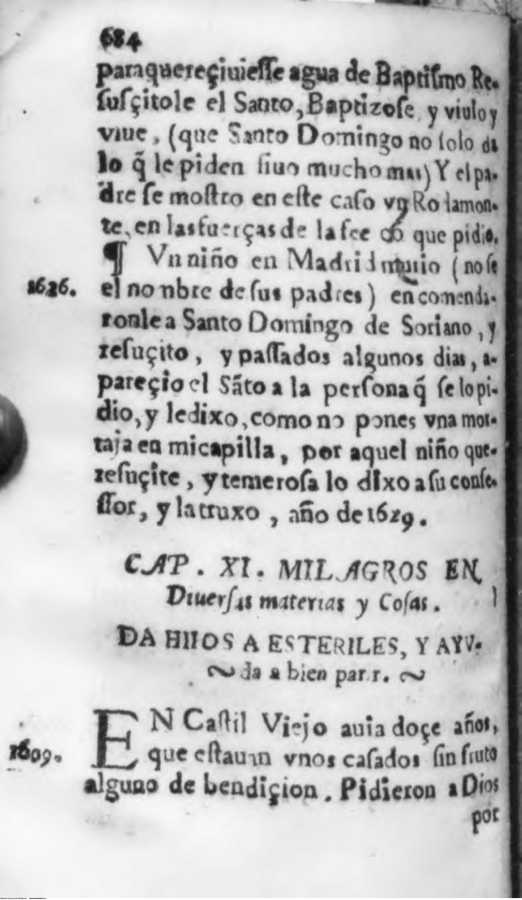 684
paraquereçiuiesse agua de Baptismo Re-
susçitole el Santo, Baptizose, y viuio y
viue, (que Santo Domingo no solo da
lo q̃ le piden sino mucho mas) Y el pa-
dre se mostro en este caso vn Rodamon-
te, en las fuerças de la fee cõ que pidio.
¶ Vn niño en Madrid murio (no se
1626. el nombre de sus padres) encomenda-
ronle a Santo Domingo de Soriano, y
resuçito, y passados algunos dias, a-
pareçio el Sãto a la persona q̃ se lo pi-
dio, y le dixo, como no pones vna mor-
taja en mi capilla, por aquel niño que
resuçite, y temerosa lo dixo a su confe-
ssor, y la truxo, año de 1629.
CAP. XI. MILAGROS EN
Diuersas materias y Cosas.
DA HIIOS A ESTERILES, Y AYV-
da a bien parir.
EN Castil Viejo auia doçe años,
1609. que estauan vnos casados sin fruto
alguno de bendiçion. Pidieron a Dios
por